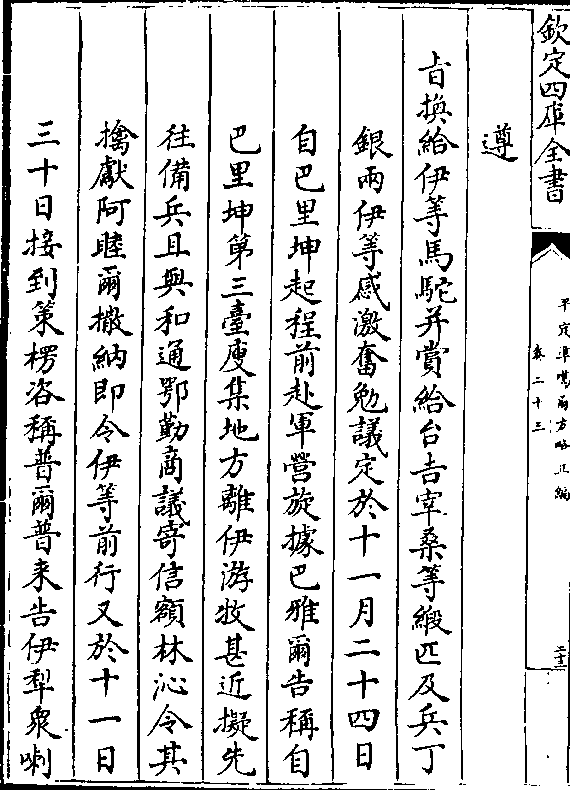 欽定四庫全書
平定準噶爾方略正編
卷二十三
二十三
遵
旨換給伊等馬駝并賞給台吉宰桑等緞匹及兵丁
銀兩伊等感激奮勉議定於十一月二十四日
自巴里坤起程前赴軍營旋據巴雅爾告稱自
巴里坤第三臺度集地方離伊游牧甚近擬先
往備兵且與和通鄂勤商議寄信額林沁令其
擒獻阿睦爾撒納即令伊等前行又於十一日
三十日接到策楞咨稱普爾普來告伊犁衆喇